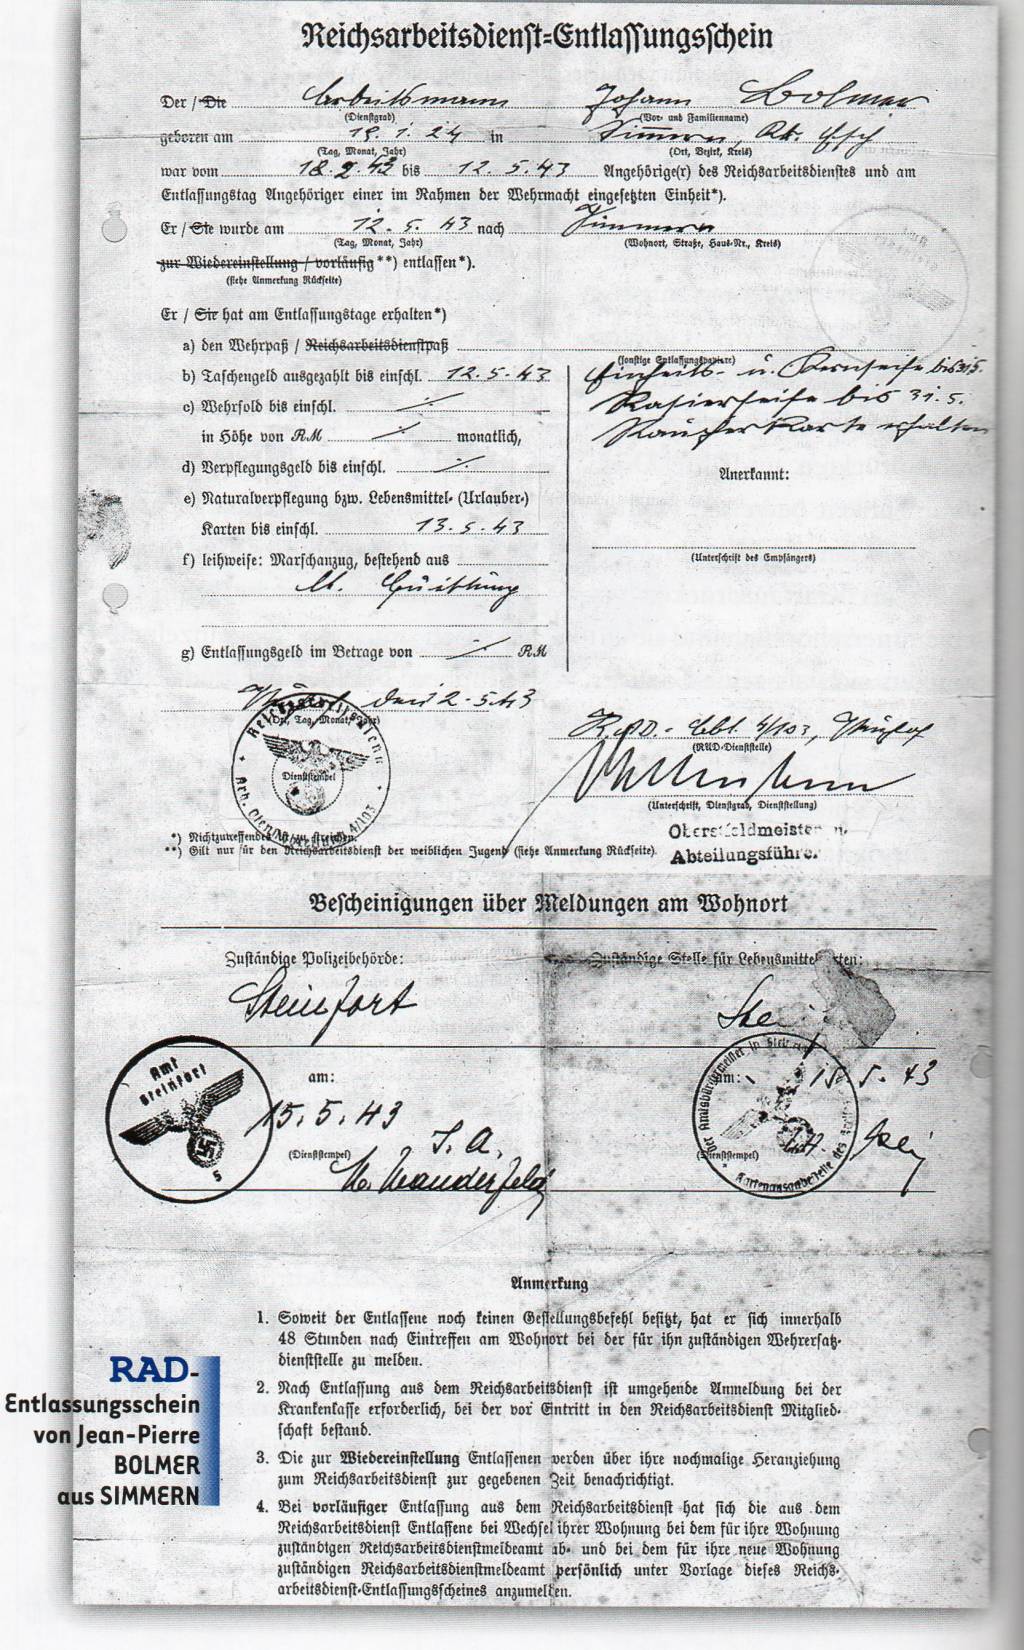 Reichsarbeitsdienst=Entlassungsschein
Der / Die Arbeitsmann Johann Bolmer
(Dienstgrad) (Vor- und Familienname)
geboren am 18.1.24 in Simmern, Kr. Esch
(Tag, Monat, Jahr) (Ort, Bezirk, Kreis)
war vom 18.2.43 bis 12.5.43 Angehörige(r) des Reichsarbeitsdienstes und am
Entlassungstag Angehöriger einer im Rahmen der Wehrmacht eingesetzten Einheit*).
Er / Sie wurde am 12.5.43 nach Simmern
(Tag, Monat, Jahr) (Wohnort, Straße, Haus-Nr., Kreis)
zur Wiedereinstellung / vorläufig **) entlassen*).
(siehe Anmerkung Rückseite)
Er / Sie hat am Entlassungstage erhalten*)
a) den Wehrpaß / Reichsarbeitsdienstpaß
(sonstige Entlassungspapiere)
b) Taschengeld ausgezahlt bis einschl. 12.5.43
Einheits- u. Kernseife bis 31.5.
c) Wehrsold bis einschl. ./.
Rasierseife bis 31.5.
in Höhe von RM ./. monatlich,
Raucherkarte erhalten
d) Verpflegungsgeld bis einschl. ./.
Anerkannt:
e) Naturalverpflegung bzw. Lebensmittel- (Urlauber-)
Karten bis einschl. 13.5.43
f) leihweise: Marschanzug, bestehend aus
(Unterschrift des Empfängers)
lt. Quittung
g) Entlassungsgeld im Betrage von ./. RM
den 12.5.43
(Ort, Tag, Monat, Jahr)
R.A.D.- Abt. 4/103,
(RAD-Dienststelle)
Dienststempel
Reichsarbeitsdienst
4/103
(Unterschrift, Dienstgrad, Dienststellung)
Oberstfeldmeister u.
Abteilungsführer
*) Nichtzutreffendes ist zu streichen.
**) Gilt nur für den Reichsarbeitsdienst der weiblichen Jugend (siehe Anmerkung Rückseite).
Bescheinigungen über Meldungen am Wohnort
Zuständige Polizeibehörde: Zuständige Stelle für Lebensmittelkarten:
Steinfort Stei
Amt
Steinfort
5
am: am:
15.5.43 15.5.43
(Dienststempel) (Dienststempel)
I. A.
Der Amtsbürgermeister in Steinfort
Kartenausgabestelle des
Anmerkung
1. Soweit der Entlassene noch keinen Gestellungsbefehl besitzt, hat er sich innerhalb
48 Stunden nach Eintreffen am Wohnort bei der für ihn zuständigen Wehrersatz-
dienststelle zu melden.
2. Nach Entlassung aus dem Reichsarbeitsdienst ist umgehende Anmeldung bei der
Krankenkasse erforderlich, bei der vor Eintritt in den Reichsarbeitsdienst Mitglied-
schaft bestand.
3. Die zur Wiedereinstellung Entlassenen werden über ihre nochmalige Heranziehung
zum Reichsarbeitsdienst zur gegebenen Zeit benachrichtigt.
4. Bei vorläufiger Entlassung aus dem Reichsarbeitsdienst hat sich die aus dem
Reichsarbeitsdienst Entlassene bei Wechsel ihrer Wohnung bei dem für ihre Wohnung
zuständigen Reichsarbeitsdienstmeldeamt ab- und bei dem für ihre neue Wohnung
zuständigen Reichsarbeitsdienstmeldeamt persönlich unter Vorlage dieses Reichs-
arbeitsdienst-Entlassungsscheines anzumelden.
RAD-
Entlassungsschein
von Jean-Pierre
BOLMER
aus SIMMERN